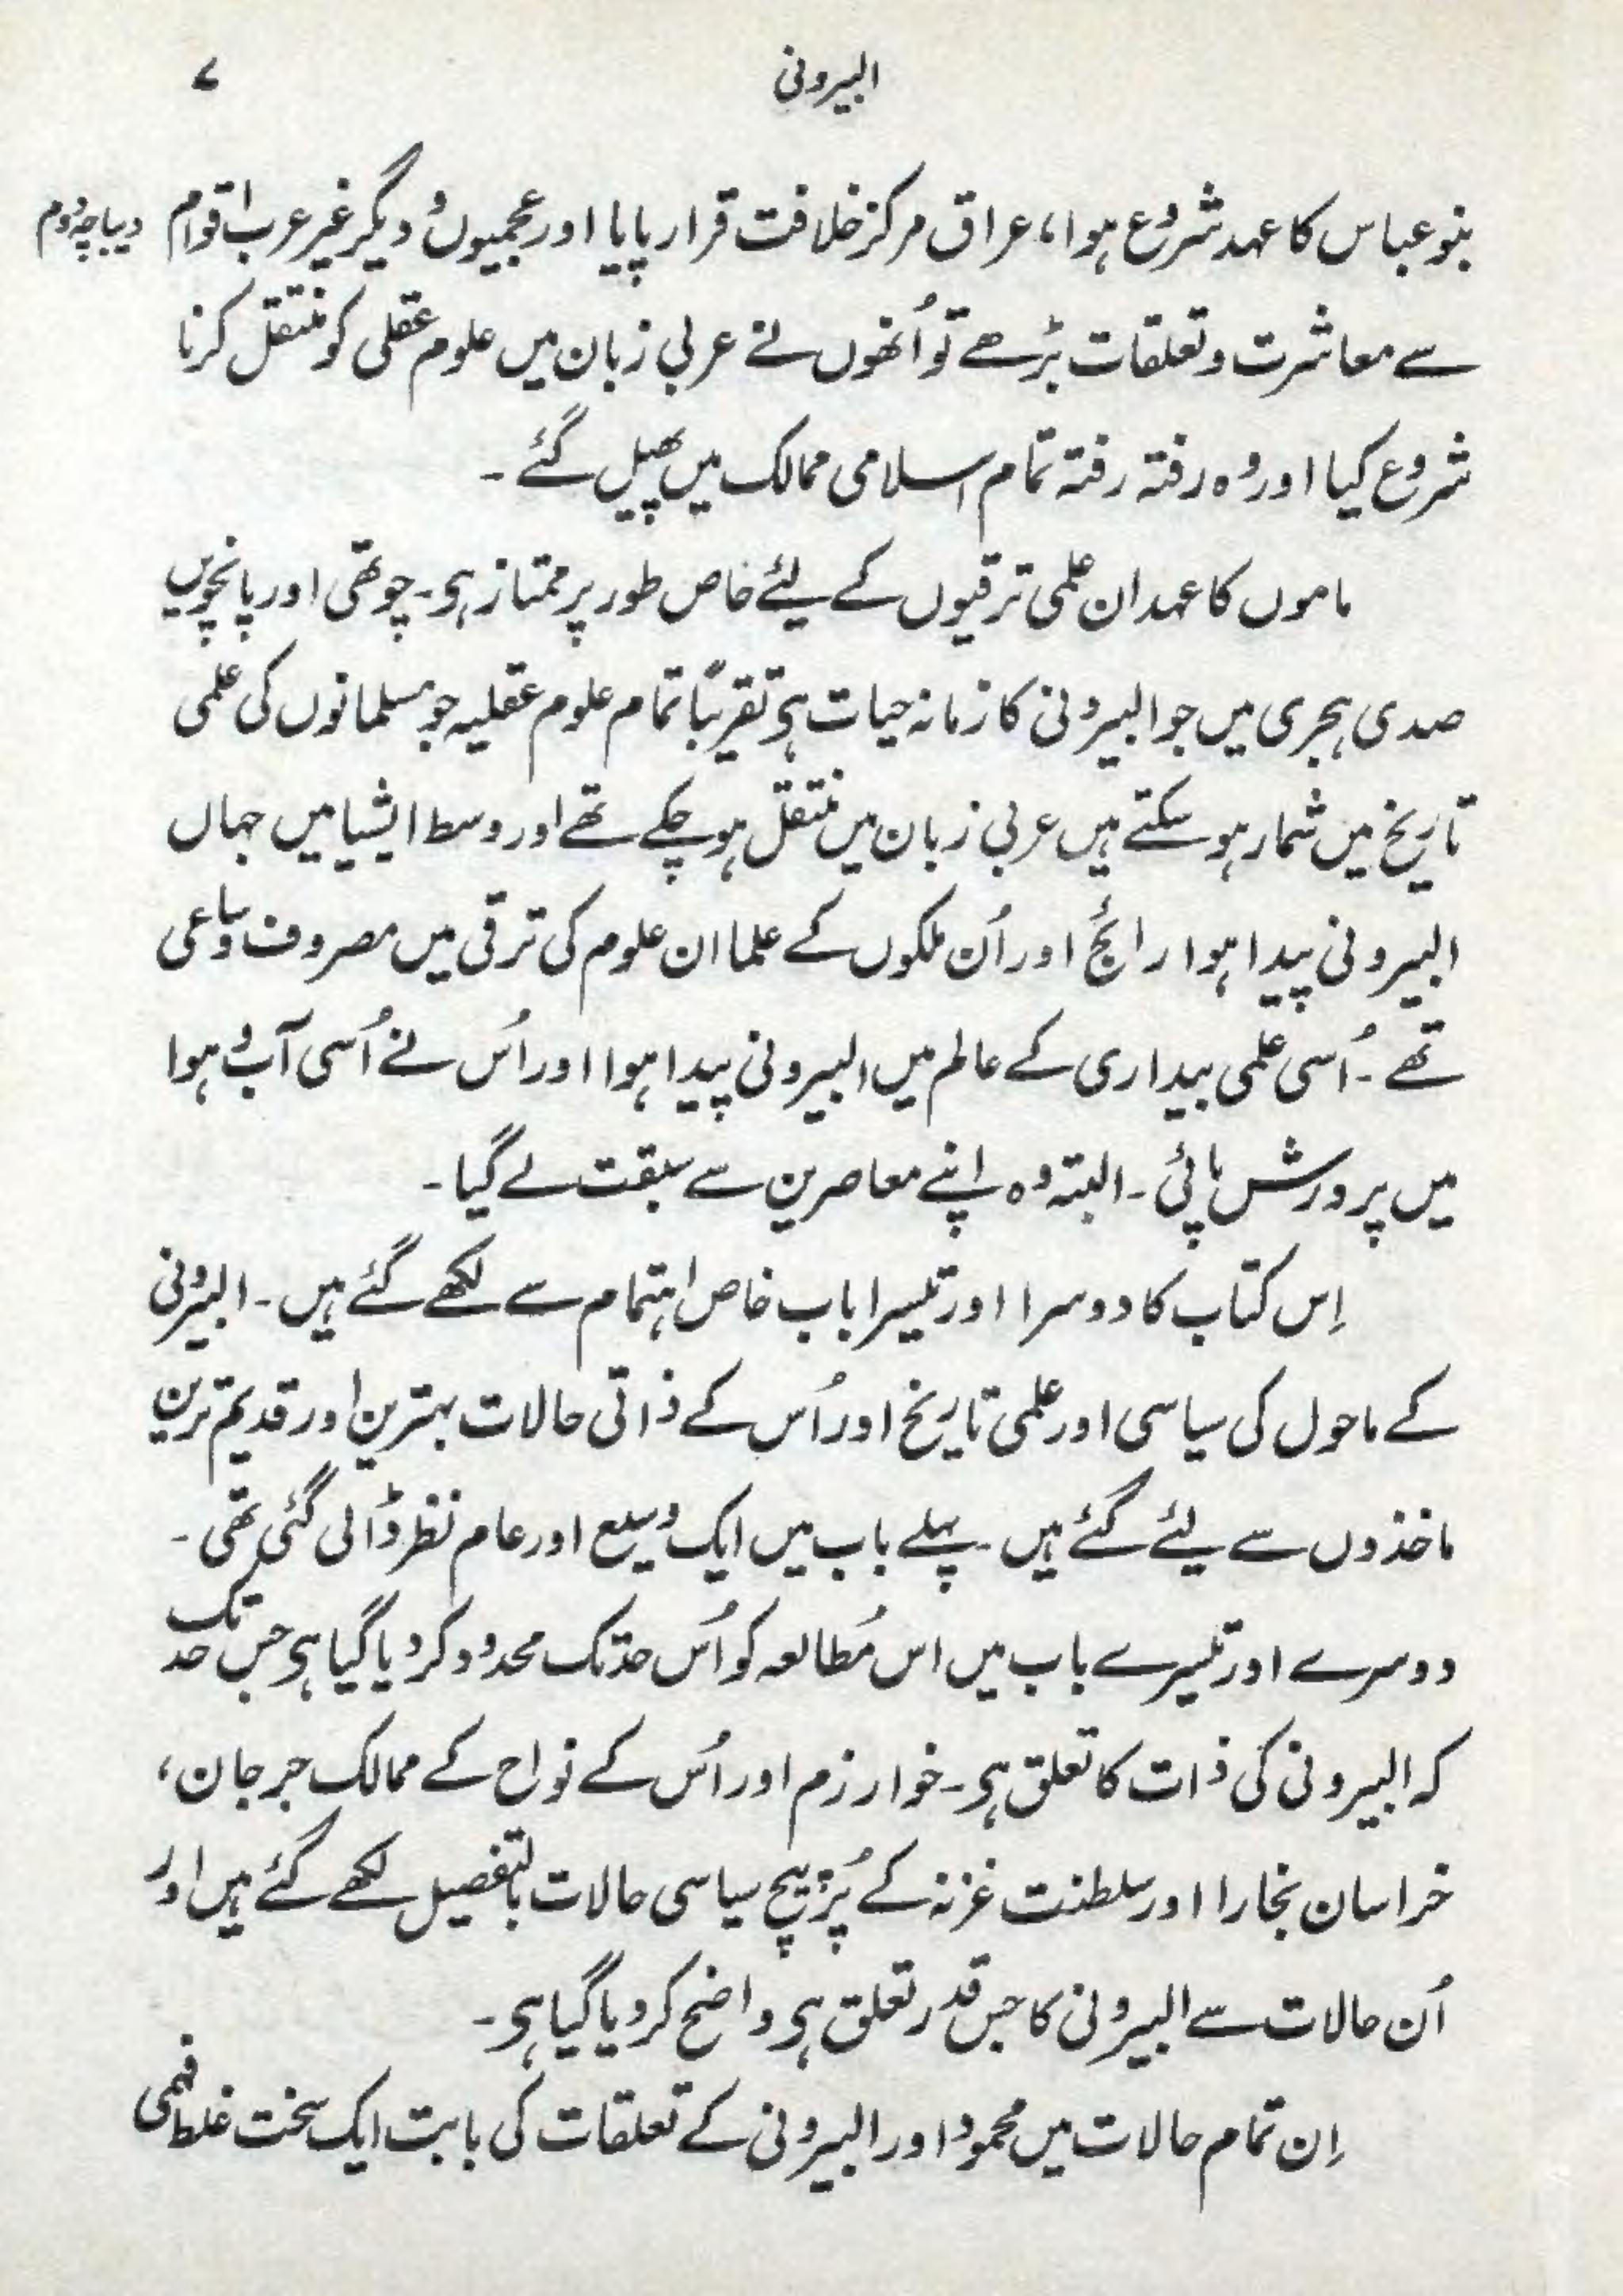 البیرونی ۷
بنو عباس کا عہد شروع ہوا، عراق مرکز خلافت قرار پایا اور عجمیوں و دیگر غیر عرب اقوام
دیباچہ دوم
سے معاشرت و تعلقات بڑھے تو اُنھوں نے عربی زبان میں علوم عقلی کو منتقل کرنا
شروع کیا اور وہ رفتہ رفتہ تمام اسلامی ممالک میں پھیل گئے ۔
ماموں کا عہد ان علمی ترقیوں کے لئے خاص طور پر ممتاز ہی ۔ چوتھی اور پانچویں
صدی ہجری میں جو البیرونی کا زمانہ حیات ہی تقریبًا تمام علوم عقلیہ جو مسلمانوں کی علمی
تاریخ میں شمار ہو سکتے ہیں عربی زبان میں منتقل ہو چکے تھے اور وسط ایشیا میں جہاں
البیرونی پیدا ہوا رائج اور اُن ملکوں کے علما ان علوم کی ترقی میں مصروف و ساعی
تھے ۔ اُسی علمی بیداری کے عالم میں البیرونی پیدا ہوا اور اُس نے اُسی آب و ہوا
میں پرورش پائی ۔ البتہ وہ اپنے معاصرین سے سبقت لے گیا ۔
اِس کتاب کا دوسرا اور تیسرا باب خاص اہتمام سے لکھے گئے ہیں ۔ البیرونی
کے ماحول کی سیاسی اور علمی تاریخ اور اُس کے ذاتی حالات بہترین اور قدیم ترین
ماخذوں سے لئے گئے ہیں ۔ پہلے باب میں ایک وسیع اور عام نظر ڈالی گئی تھی ۔
دوسرے اور تیسرے باب میں اس مُطالعہ کو اُس حد تک محدود کر دیا گیا ہی جس حد تک
کہ البیرونی کی ذات کا تعلق ہی ۔ خوارزم اور اُس کے نواح کے ممالک جرجان،
خراسان بخارا اور سلطنت غزنہ کے پُر پیچ سیاسی حالات بالتفصیل لکھے گئے ہیں اور
اُن حالات سے البیرونی کا جس قدر تعلق ہی واضح کر دیا گیا ہی ۔
اِن تمام حالات میں محمود اور البیرونی کے تعلقات کی بابت ایک سخت غلط فہمی